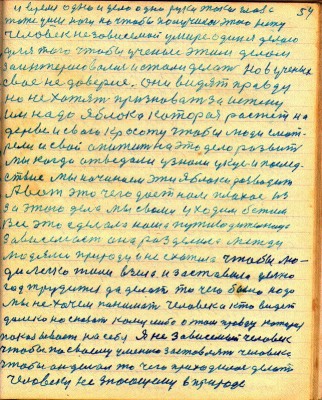 54
и время одно и дело одно руки только слова
тоже ума надо но чтобы получилось это нету
человек независимой в мире один я делаю
для того чтобы ученые этим делом
заинтересовались и стали делать но в ученых
свое не доверие. они видят правду
но не хотят признавать за истену
им надо яблоко которая растет на
дереве свою красоту чтобы люди смот-
рели и свой апитит на это дело развит
мы когда отведали узнали укус и послед-
ствие мы начинаем эти яблоки разводить
А вот это чего дает нам плохое из
за этого дела мы своими уходим
Все это сделала наша
зависемает она разделила между
людями природу и не схотела чтобы лю-
ди легко жили взяла и заставила
год трудится да делать то чего было надо
мы не хочем понимать человека кто видет
далеко но сказать кому либо о том правду которая
показывает на себя Я не зависемый человек
чтобы по своему умению заставлять человека
чтобы он делал то чего приходилося делать
человеку не